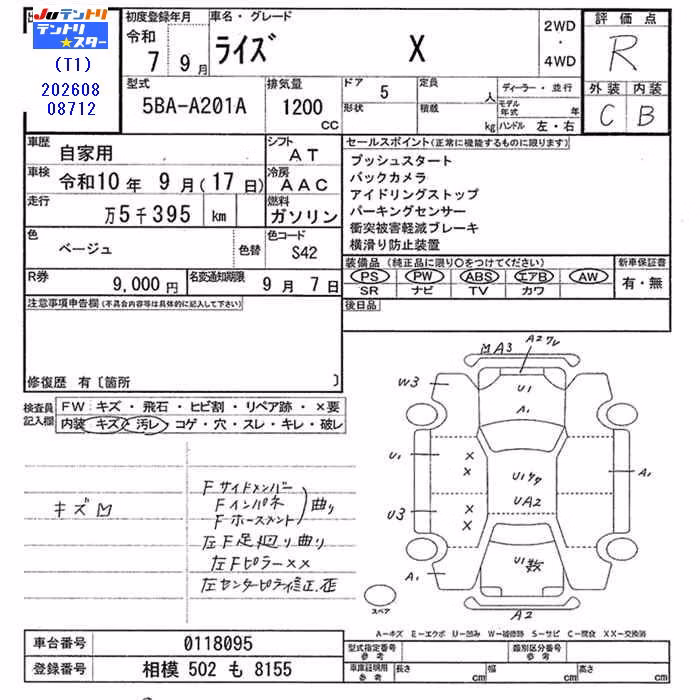 Juテントリ
テントリ★スター
(T1)
202608
08712
初度登録年月
令和
7 9月
車名・グレード
ライズ X
2WD
・
4WD
評価点
R
外装 内装
C B
型式
5BA-A201A
排気量
1200
cc
ドア 5
形状
定員 人
積載 kg
ディーラー・並行
モデル年式 年
ハンドル 左・右
車歴 自家用
シフト AT
車検 令和10年 9月(17日)
冷房 AAC
走行 万5千395 km
燃料 ガソリン
色 ベージュ 色替
色コード S42
R券 9,000円
名変通知期限 9月 7日
セールスポイント(正常に機能するものに限ります)
プッシュスタート
バックカメラ
アイドリングストップ
パーキングセンサー
衝突被害軽減ブレーキ
横滑り防止装置
装備品(純正品に限り○をつけてください)
PS PW ABS エアB AW
SR ナビ TV カワ
新車保証書
有・無
後日品
注意事項申告欄(不具合内容等は具体的に記入して下さい)
修復歴 有〔箇所 〕
検査員
記入欄
FW キズ・飛石・ヒビ割・リペア跡・×要
内装 キズ・汚レ・コゲ・穴・スレ・キレ・破レ
キズM
Fサイドメンバー
Fインパネ
Fホースメント
曲り
左F足廻り曲り
左Fピラー××
左センターピラー修正歪
MA3
A2ワレ
W3
U1
A1
U1
×
×
U1ワタ
A1
UA2
U3
×
×
U1数
A1
A2
スペア
A―キズ E―エクボ U―凹み W―補修跡 S―サビ C―腐食 XX―交換済
車台番号 0118095
登録番号 相模 502 も 8155
型式指定番号
参考
類別区分番号
参考
車庫証明用
参考
長さ cm
幅 cm
高さ cm